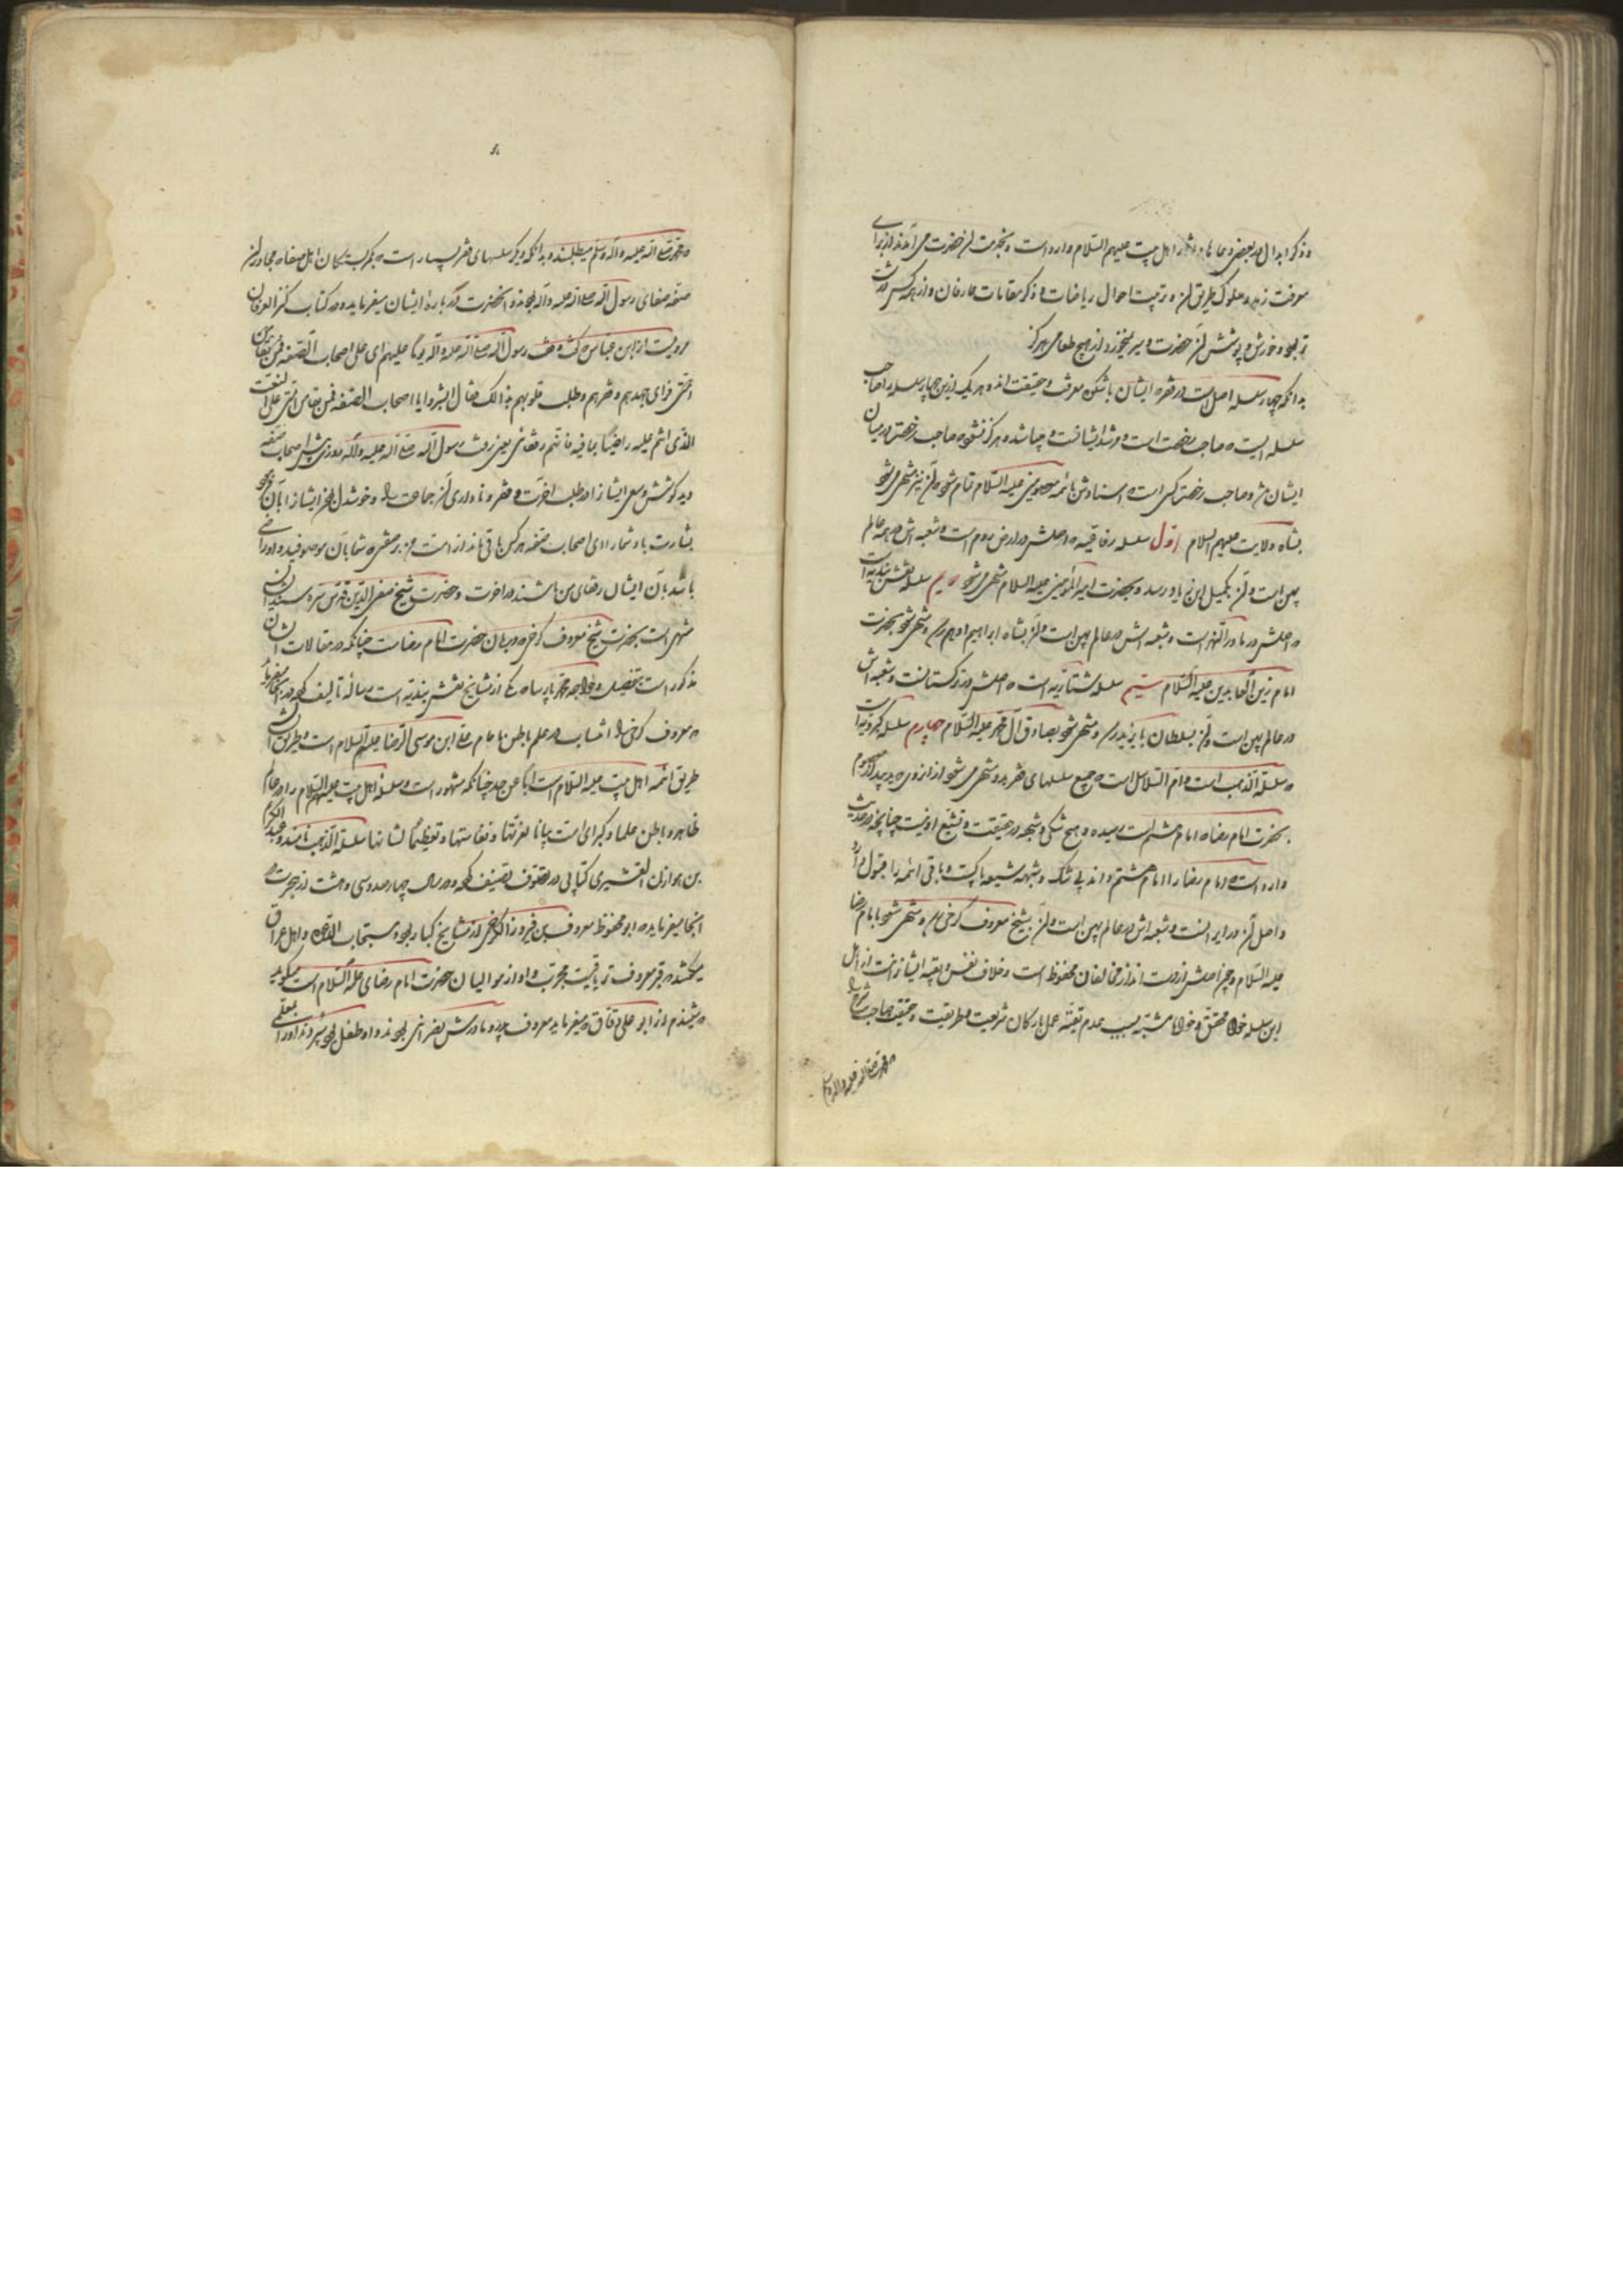 و ذکر ابدال در بعضی دعاها و آثار اهل بیت علیهم السلام وارد است و بخدمت آن حضرت می آمدند از برای
معرفت زهد و سلوک طریق آن و ترتیب احوال ریاضات و ذکر مقامات عارفان و از همه کس
بود و خورش و پوشش آن حضرت و سیر نمیخورد از هیچ طعامی هرگز
بدانکه چهار سلسله اصل است در فقر که ایشان باشکوه معرفت و حقیقت اند و هر یک ازین چهار سلسله را صاحب
سلسله ایست که صاحب رخصت است و مرشد ایشانست و چنانشده هرگز نشود که صاحب رخصتی در میان
ایشان نبود و صاحب رخصت کسی است که اسنادش بائمه معصومین علیه السلام تمام شود و آن نیز منتهی می شود
بشاه ولایت علیهم السلام اول سلسله رفاعیه که اصلش در ارض روم است و شعبه اش در همه عالم
پهن است و آن بکمیل ابن زیاد رسد و بحضرت امیر المؤمنین علیه السلام منتهی می شود دویم سلسله نقشبندیه است
که اصلش در ماوراء النهر است و شعبه اش در عالم پهن است و آن بشاه ابراهیم ادهم رسد و منتهی شود بحضرت
امام زین العابدین علیه السلام سیم سلسله شتاریه است که اصلش در ترکستانست و شعبه اش
در عالم پهن است و آن بسلطان بایزید رسد و منتهی شود بصادق آل محمد علیه السلام چهارم سلسله کبرویه است
که سلسلة الذهب است و ام السلاسل است که جمیع سلسلهای فقر بدو منتهی می شود از انروی که
بحضرت امام رضا که امام هشتم است رسیده و هیچ شکی و شبهه در حقیقت و تشیع او نیست چنانچه در حدیث
وارد است که امام رضا را امام هشتم داند بی شک و شبهه شیعه پاکست و باقی ائمه را قبول دارد
و اصل آن در ایرانست و شعبه اش در عالم پهن است و آن بشیخ معروف کرخی رسد و منتهی شود بامام رضا
علیه السلام و چون اصلش ازوست از مخالفان محفوظ است و خلاف نفس و تقیه ایشانراست از اهل
این سلسله خواه محقق و خواه مشتبه بسبب عدم تقیه عمل بارکان شریعت و طریقت و حقیقت صاحب شرع که
محمد صلی الله علیه و اله وسلم
که محمد صلی الله علیه و اله وسلم میطلبند و بدانکه دیگر سلسلهای فقر بسیار است که بدکان اهل صفا که مجاوران
صفه صفای رسول الله صلی الله علیه و اله بودند و آنحضرت در باره ایشان میفرماید و در کتاب کنز العرفان
مرویست از ابن عباس که گفت وقف رسول الله صلی الله علیه و اله یوما علیهم ای علی اصحاب الصفه
فرای جهدهم و فقرهم و طلب قلوبهم بذالک فقال ابشروا یا اصحاب الصفه فمن بقی من امتی علی النعت
الذی انتم علیه راضیا بما فیه فانهم رفقائی یعنی رفت رسول الله صلی الله علیه و اله روزی پیش اصحاب صفه
دید کوشش و سعی ایشانرا در طلب اخرت و فقر و ناداری آن جماعت را و خوشدلی ایشان را بآن
بشارت باد شما را ای اصحاب صفه هر کس باقی ماند از امت من بر صفتی که شما بآن موصوفید و او راضی
باشد بآن ایشان رفقای من باشند در اخرت و حضرت شیخ صفی الدین قدس سره سند ایشان
منتهی است بحضرت شیخ معروف کرخی که دربان حضرت امام رضاست چنانکه در مقالات ایشان
مذکور است بتفصیل و خواجه محمد پارسا که از مشایخ نقشبندیه است رساله تالیف کرده در آنجا میفرماید
که معروف کرخی را انتساب در علم باطن بامام علی ابن موسی الرضا علیهم السلام است و طریق ایشان
طریق ائمه اهل بیت علیه السلام است ابا عن جد چنانکه مشهور است و سلسله اهل بیت علیهم السلام را در عالم
ظاهر و باطن علما و کبرای امت بیانا لعزتها و نفاستها و تعظیما لشانها سلسلة الذهب نامند و عبد الکریم
بن هوازن القشیری کتابی در تصوف تصنیف کرده در سال چهارصد و سی و هشت از هجرت و
آنجا میفرماید که ابو محفوظ معروف بن فیروز الکرخی از مشایخ کبار بود و مستجاب الدعوه و اهل عراق
میگفتند که قبر معروف تریاقیست مجرب و او از موالیان حضرت امام رضای علیه السلام است میگوید
که شنیدم از ابو علی دقاق که میفرماید معروف پدر و مادرش نصرانی بودند و او طفل بود سپردند او را بمعلمی